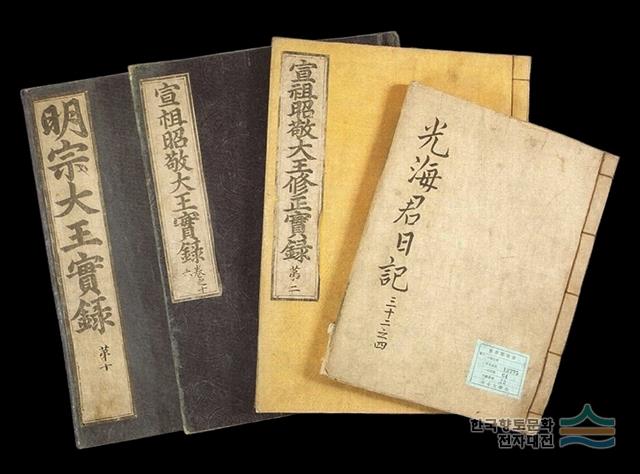 明宗大王實錄
第十
宣祖昭敬大王實錄
卷之十六
宣祖昭敬大王修正實錄
第二
光海君日記
三十二之四
12775
한국향토문화
전자대전